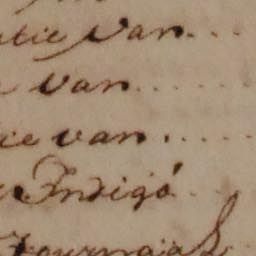 atie Van...
Van......
tie van......
Indigo
Journaal